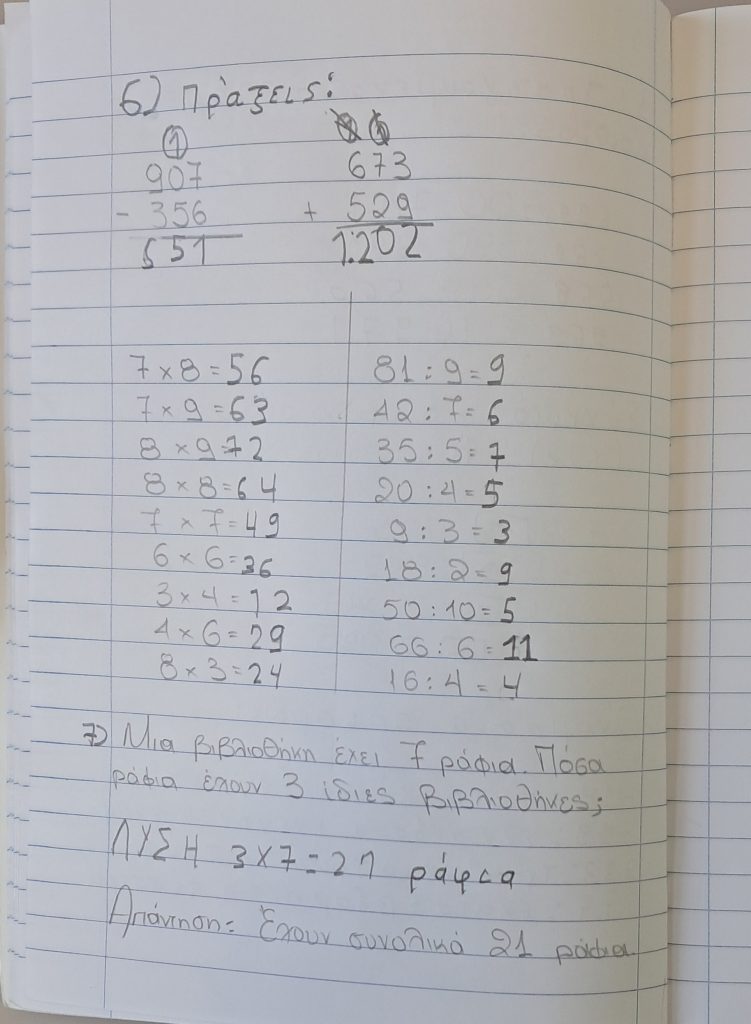 6) Πράξεις:
① 
907
- 356
551
673
+ 529
1.202
7 × 8 = 56
7 × 9 = 63
8 × 9 = 72
8 × 8 = 64
7 × 7 = 49
6 × 6 = 36
3 × 4 = 12
4 × 6 = 29
8 × 3 = 24
81 : 9 = 9
42 : 7 = 6
35 : 5 = 7
20 : 4 = 5
9 : 3 = 3
18 : 2 = 9
50 : 10 = 5
66 : 6 = 11
16 : 4 = 4
7) Μια βιβλιοθήκη έχει 7 ράφια. Πόσα
ράφια έχουν 3 ίδιες βιβλιοθήκες;
ΛΥΣΗ 3 × 7 = 21 ράφια
Απάντηση: Έχουν συνολικά 21 ράφια.